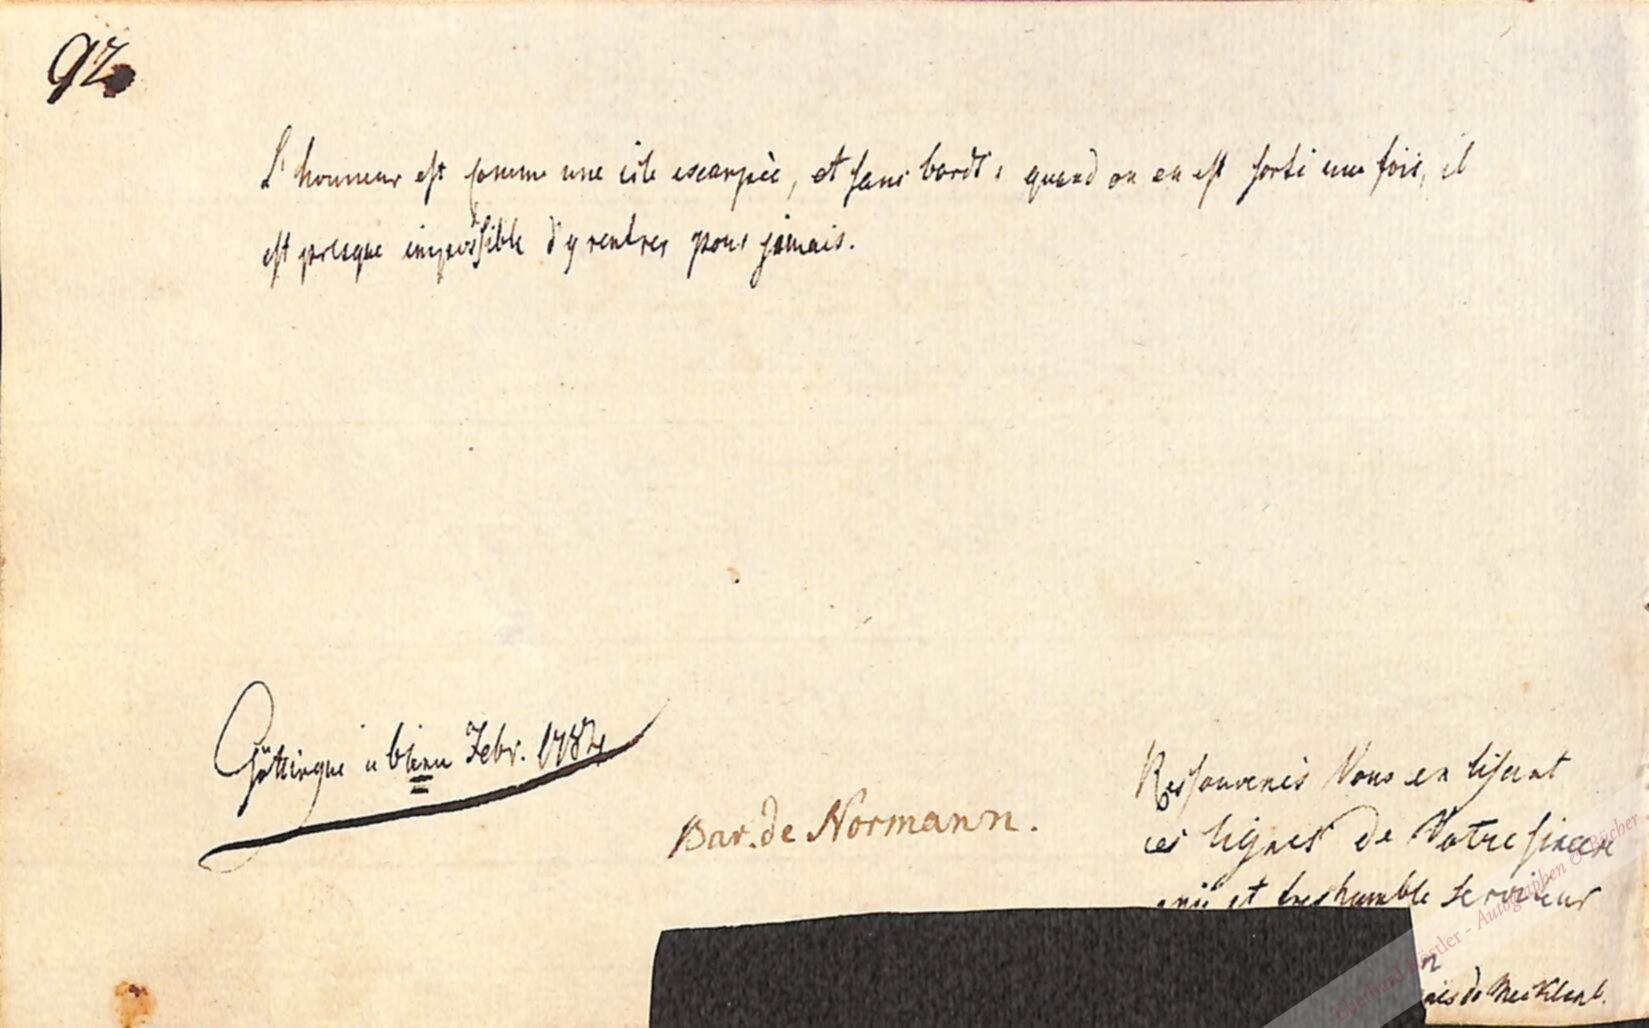 92.
L'honneur est comme une isle escarpée, et sans bords: quand on en est sorti une fois, il
est presque impossible d'y rentrer pour jamais.
Göttingue Febr. 1784
Bar. de Normann.
Ressouvenés Vous en lisant
ces lignes de Votre sincere
et tres humble serviteur
de Mecklenb.
Eberhard Köstler - Autographen & Bücher